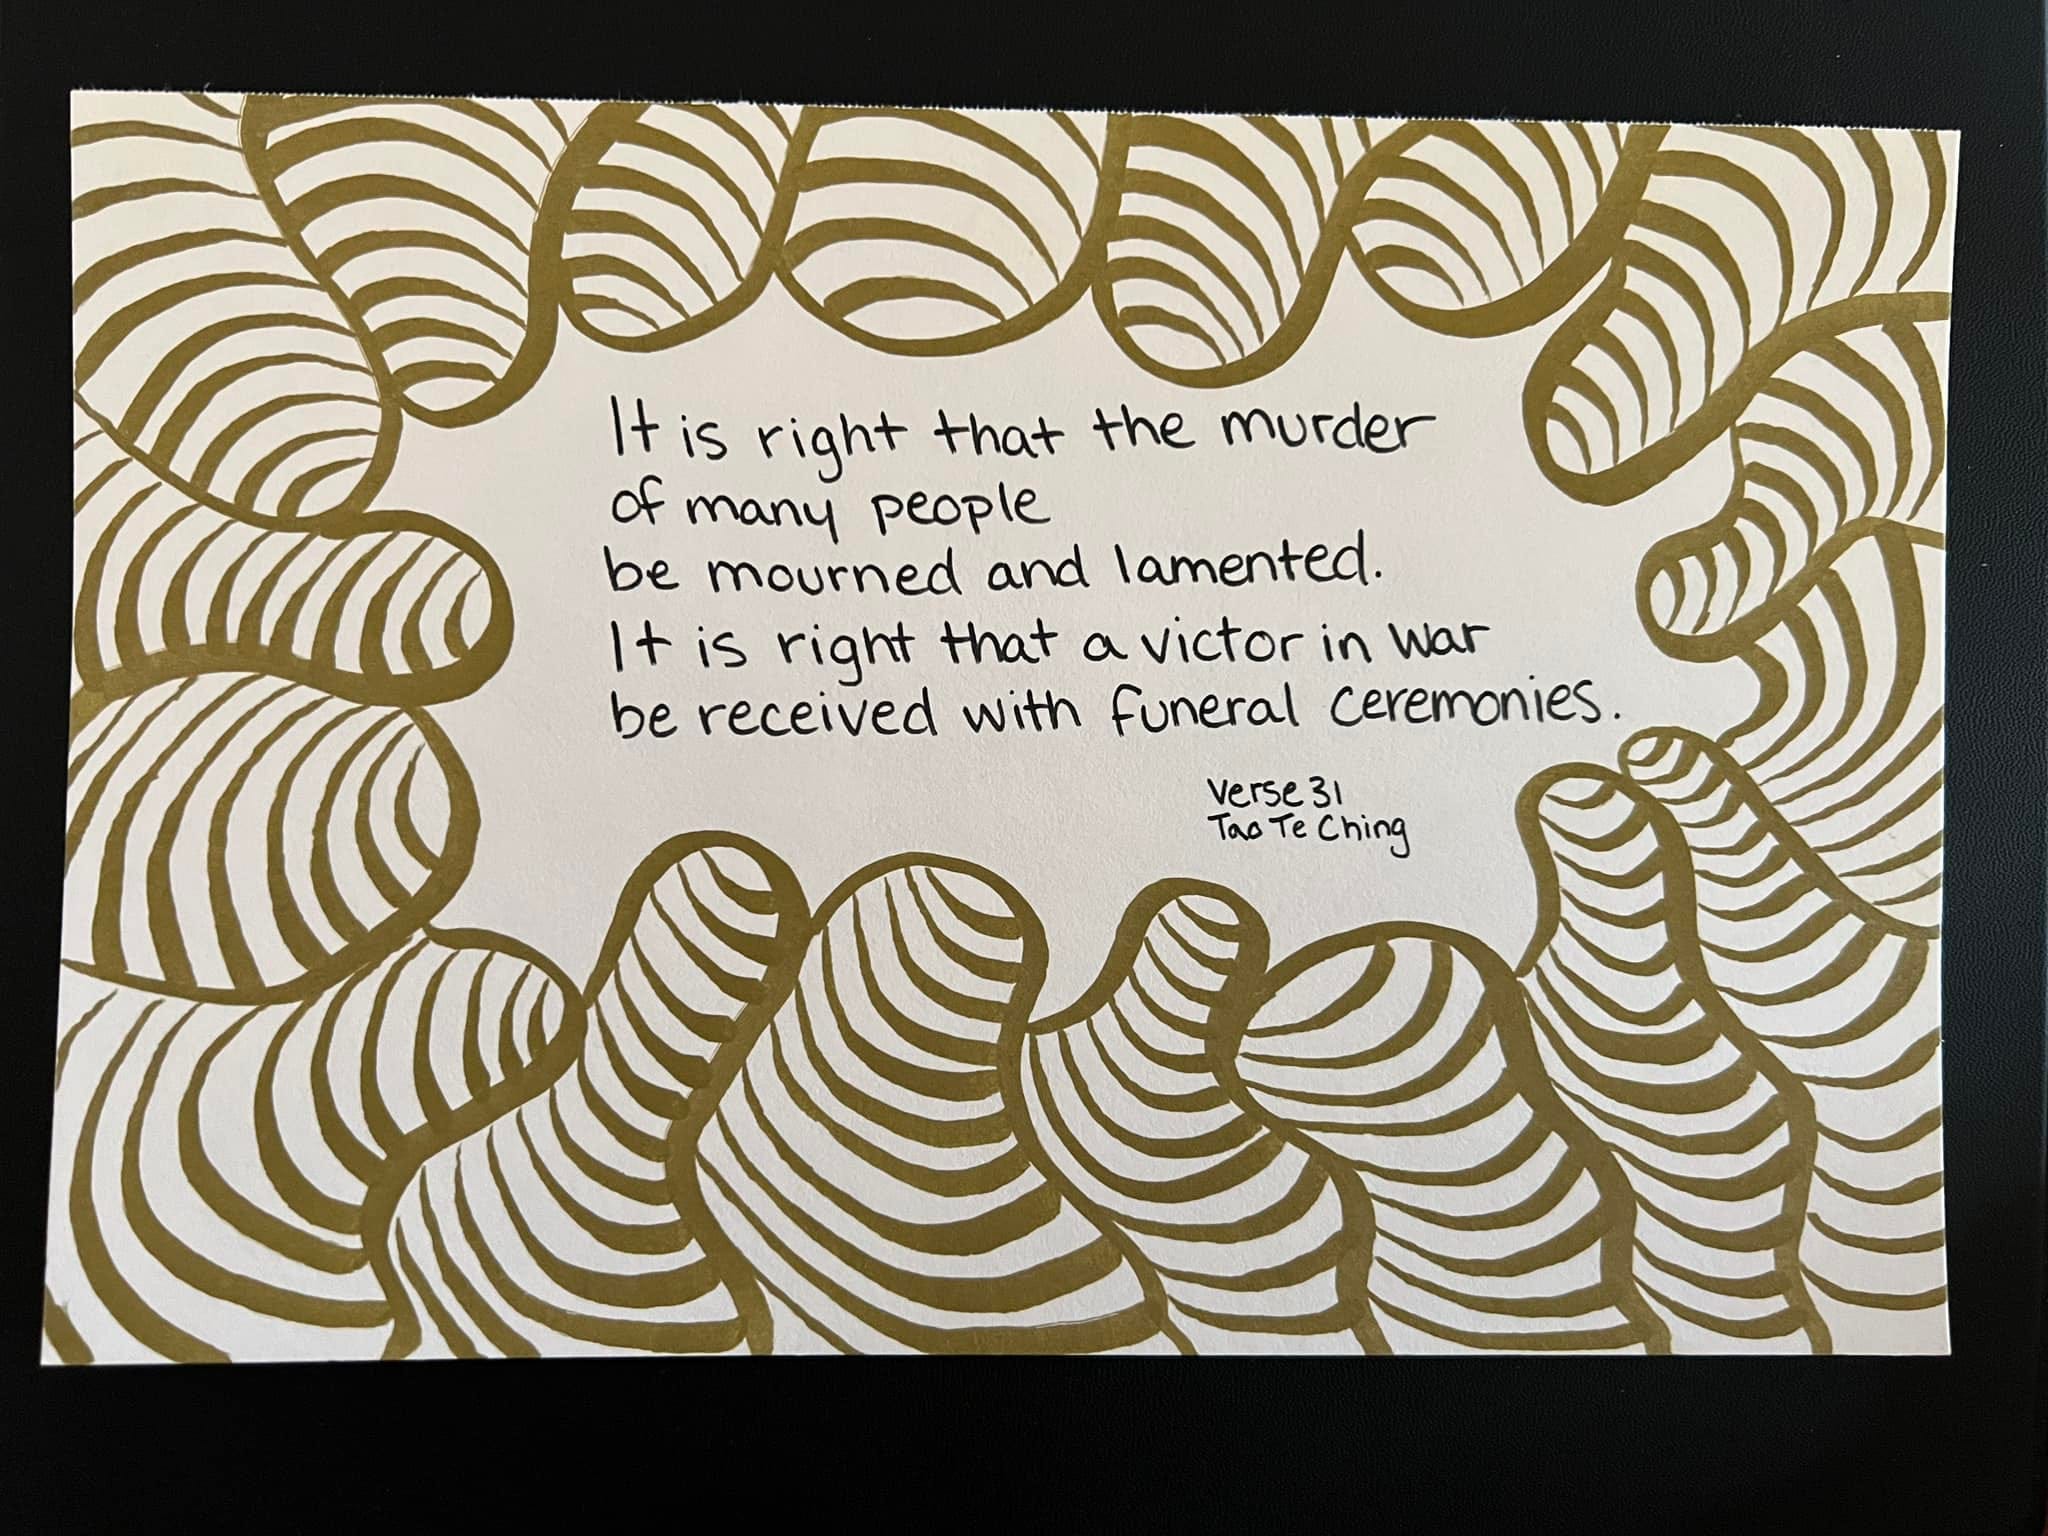 It is right that the murder
of many people
be mourned and lamented.
It is right that a victor in war
be received with funeral ceremonies.
Verse 31
Tao Te Ching